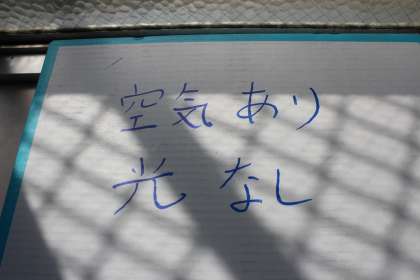 空気 あり
光 なし